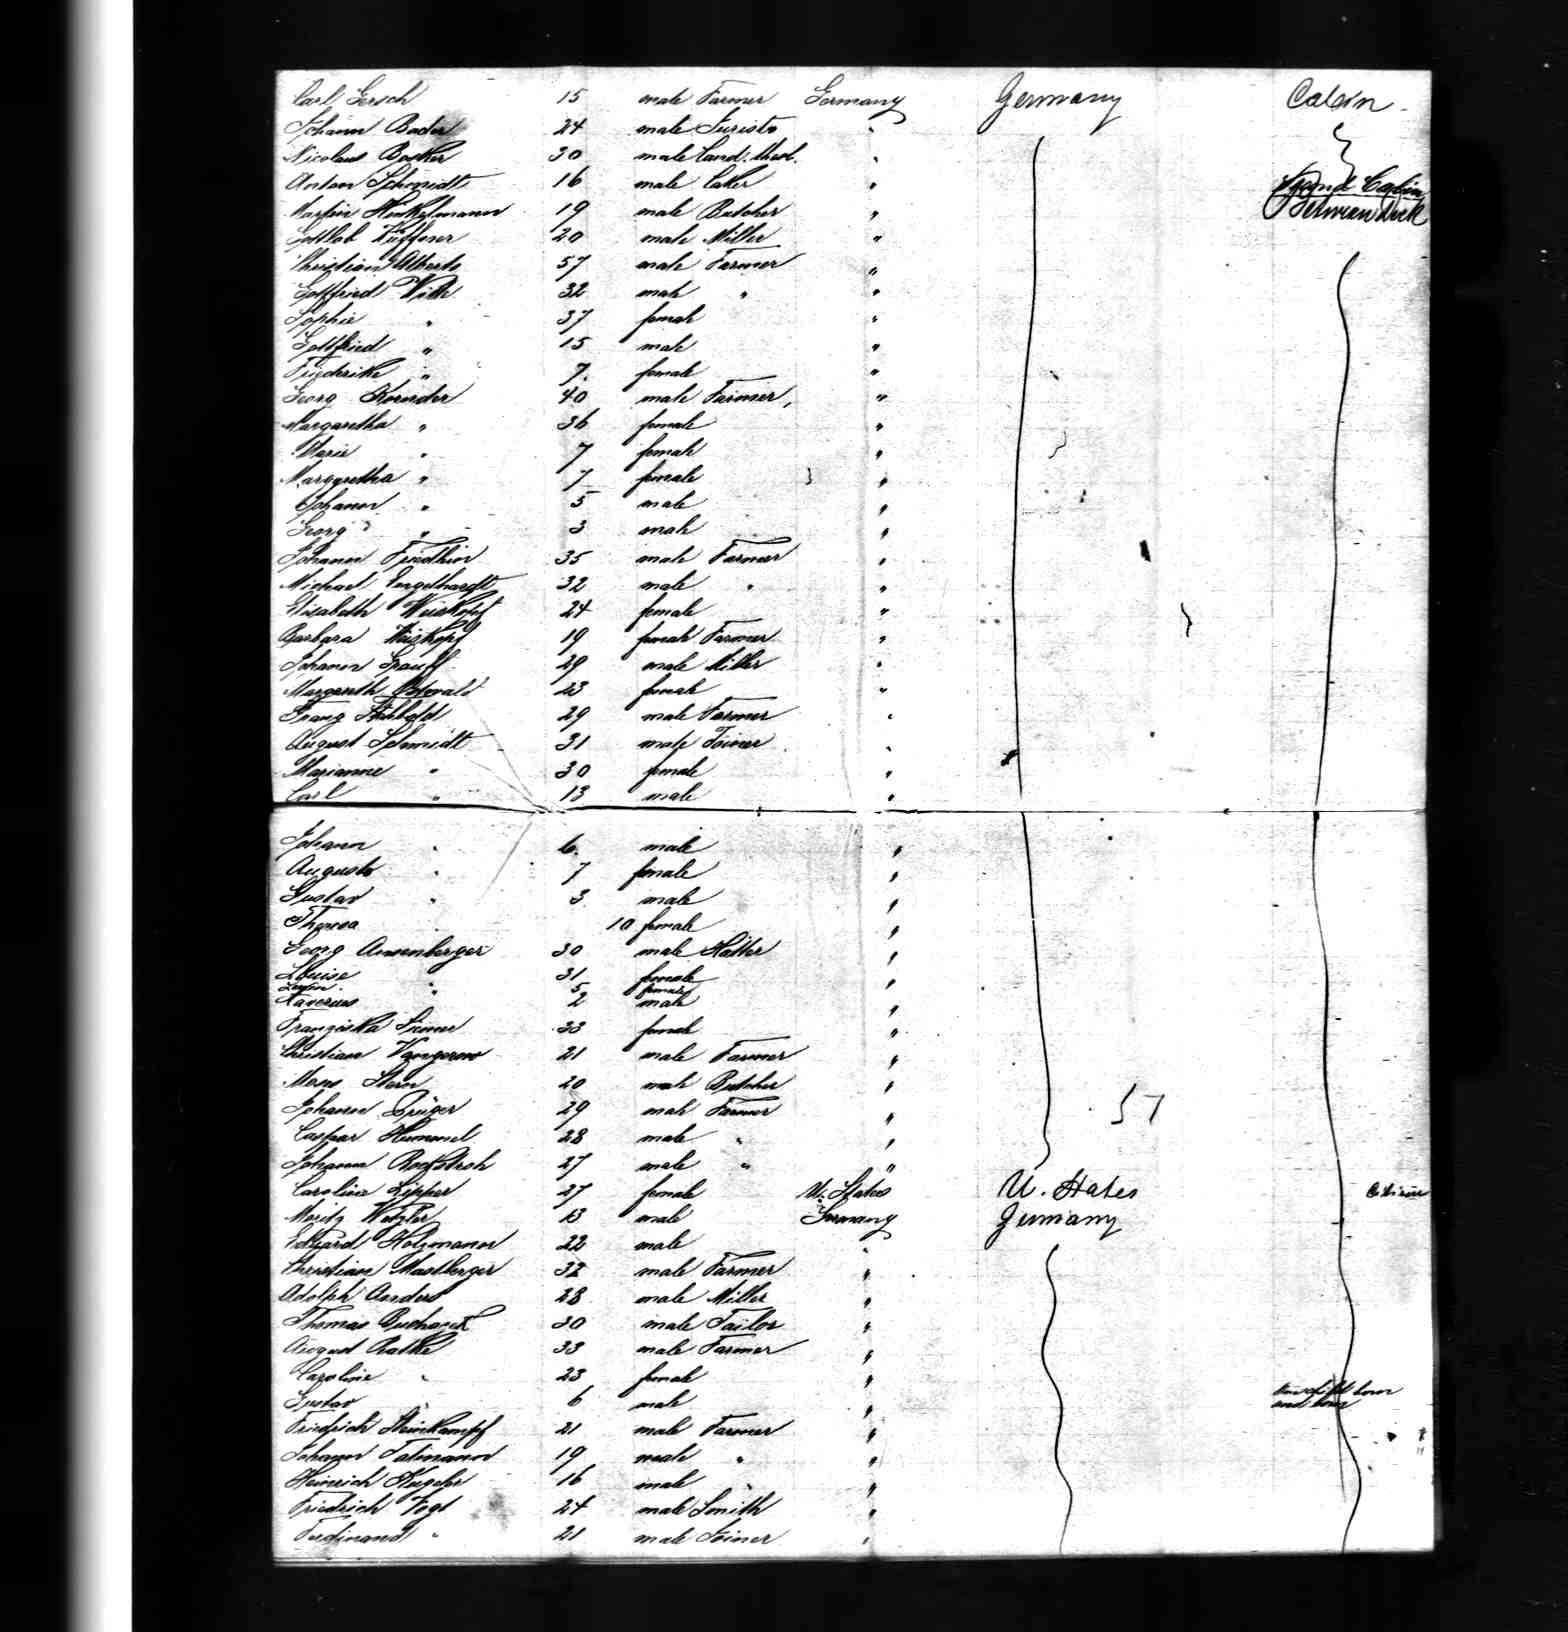 Carl Gersch 15 male Farmer Germany Germany Cabin
Johann Bader 24 male Jurist "
Nicolaus Becker 30 male Cand. theol. "
Anton Schmidt 16 male "
Martin Hinkelmann 19 male Butcher " Between deck
Gottlob 20 male Miller "
Christian Alberts 57 male Farmer "
Gottfried Witte 32 male " "
Sophie " 37 female "
Gottfried " 15 male "
Friederike " 7 female "
Georg 40 male Farmer "
Margaretha " 36 female "
Marie " 7 female "
Margaretha " 7 female "
Johann " 5 male "
Georg " 3 male "
Johann 35 male Farmer "
Michael Engelhardt 32 male " "
Elisabeth Weiskopf 24 female "
Barbara Weiskopf 19 female Farmer "
Johann 29 male Miller "
Margareth 23 female "
Franz 29 male Farmer "
August Schmidt 31 male Joiner "
Marianne " 30 female "
Carl " 13 male "
Johann " 6 male "
Auguste " 7 female "
Gustav " 3 male "
Theresa 10 female "
Georg 30 male Hatter "
Louise " 31 female "
5 female
Xaverius 2 male "
Franziska 33 female "
Christian Vangerow 21 male Farmer "
Moses Stern 20 male Butcher "
Johann Krüger 29 male Farmer "
Caspar Hummel 28 male " "
Johann Rockstroh 27 male " "
Carolina Lipper 27 female U. States U. States Citizen
Moritz Wetzler 13 male Germany Germany
Eduard Holzmann 22 male "
Christian Mastberger 32 male Farmer "
Adolph Anders 28 male Miller "
Thomas 30 male Tailor "
August Rathke 33 male Farmer "
Caroline " 23 female "
Gustav " 6 male "
Friedrich Steinkampf 21 male Farmer "
Johann 19 male " "
Heinrich 16 male " "
Friedrich Vogt 24 male Smith "
Ferdinand " 21 male Joiner "